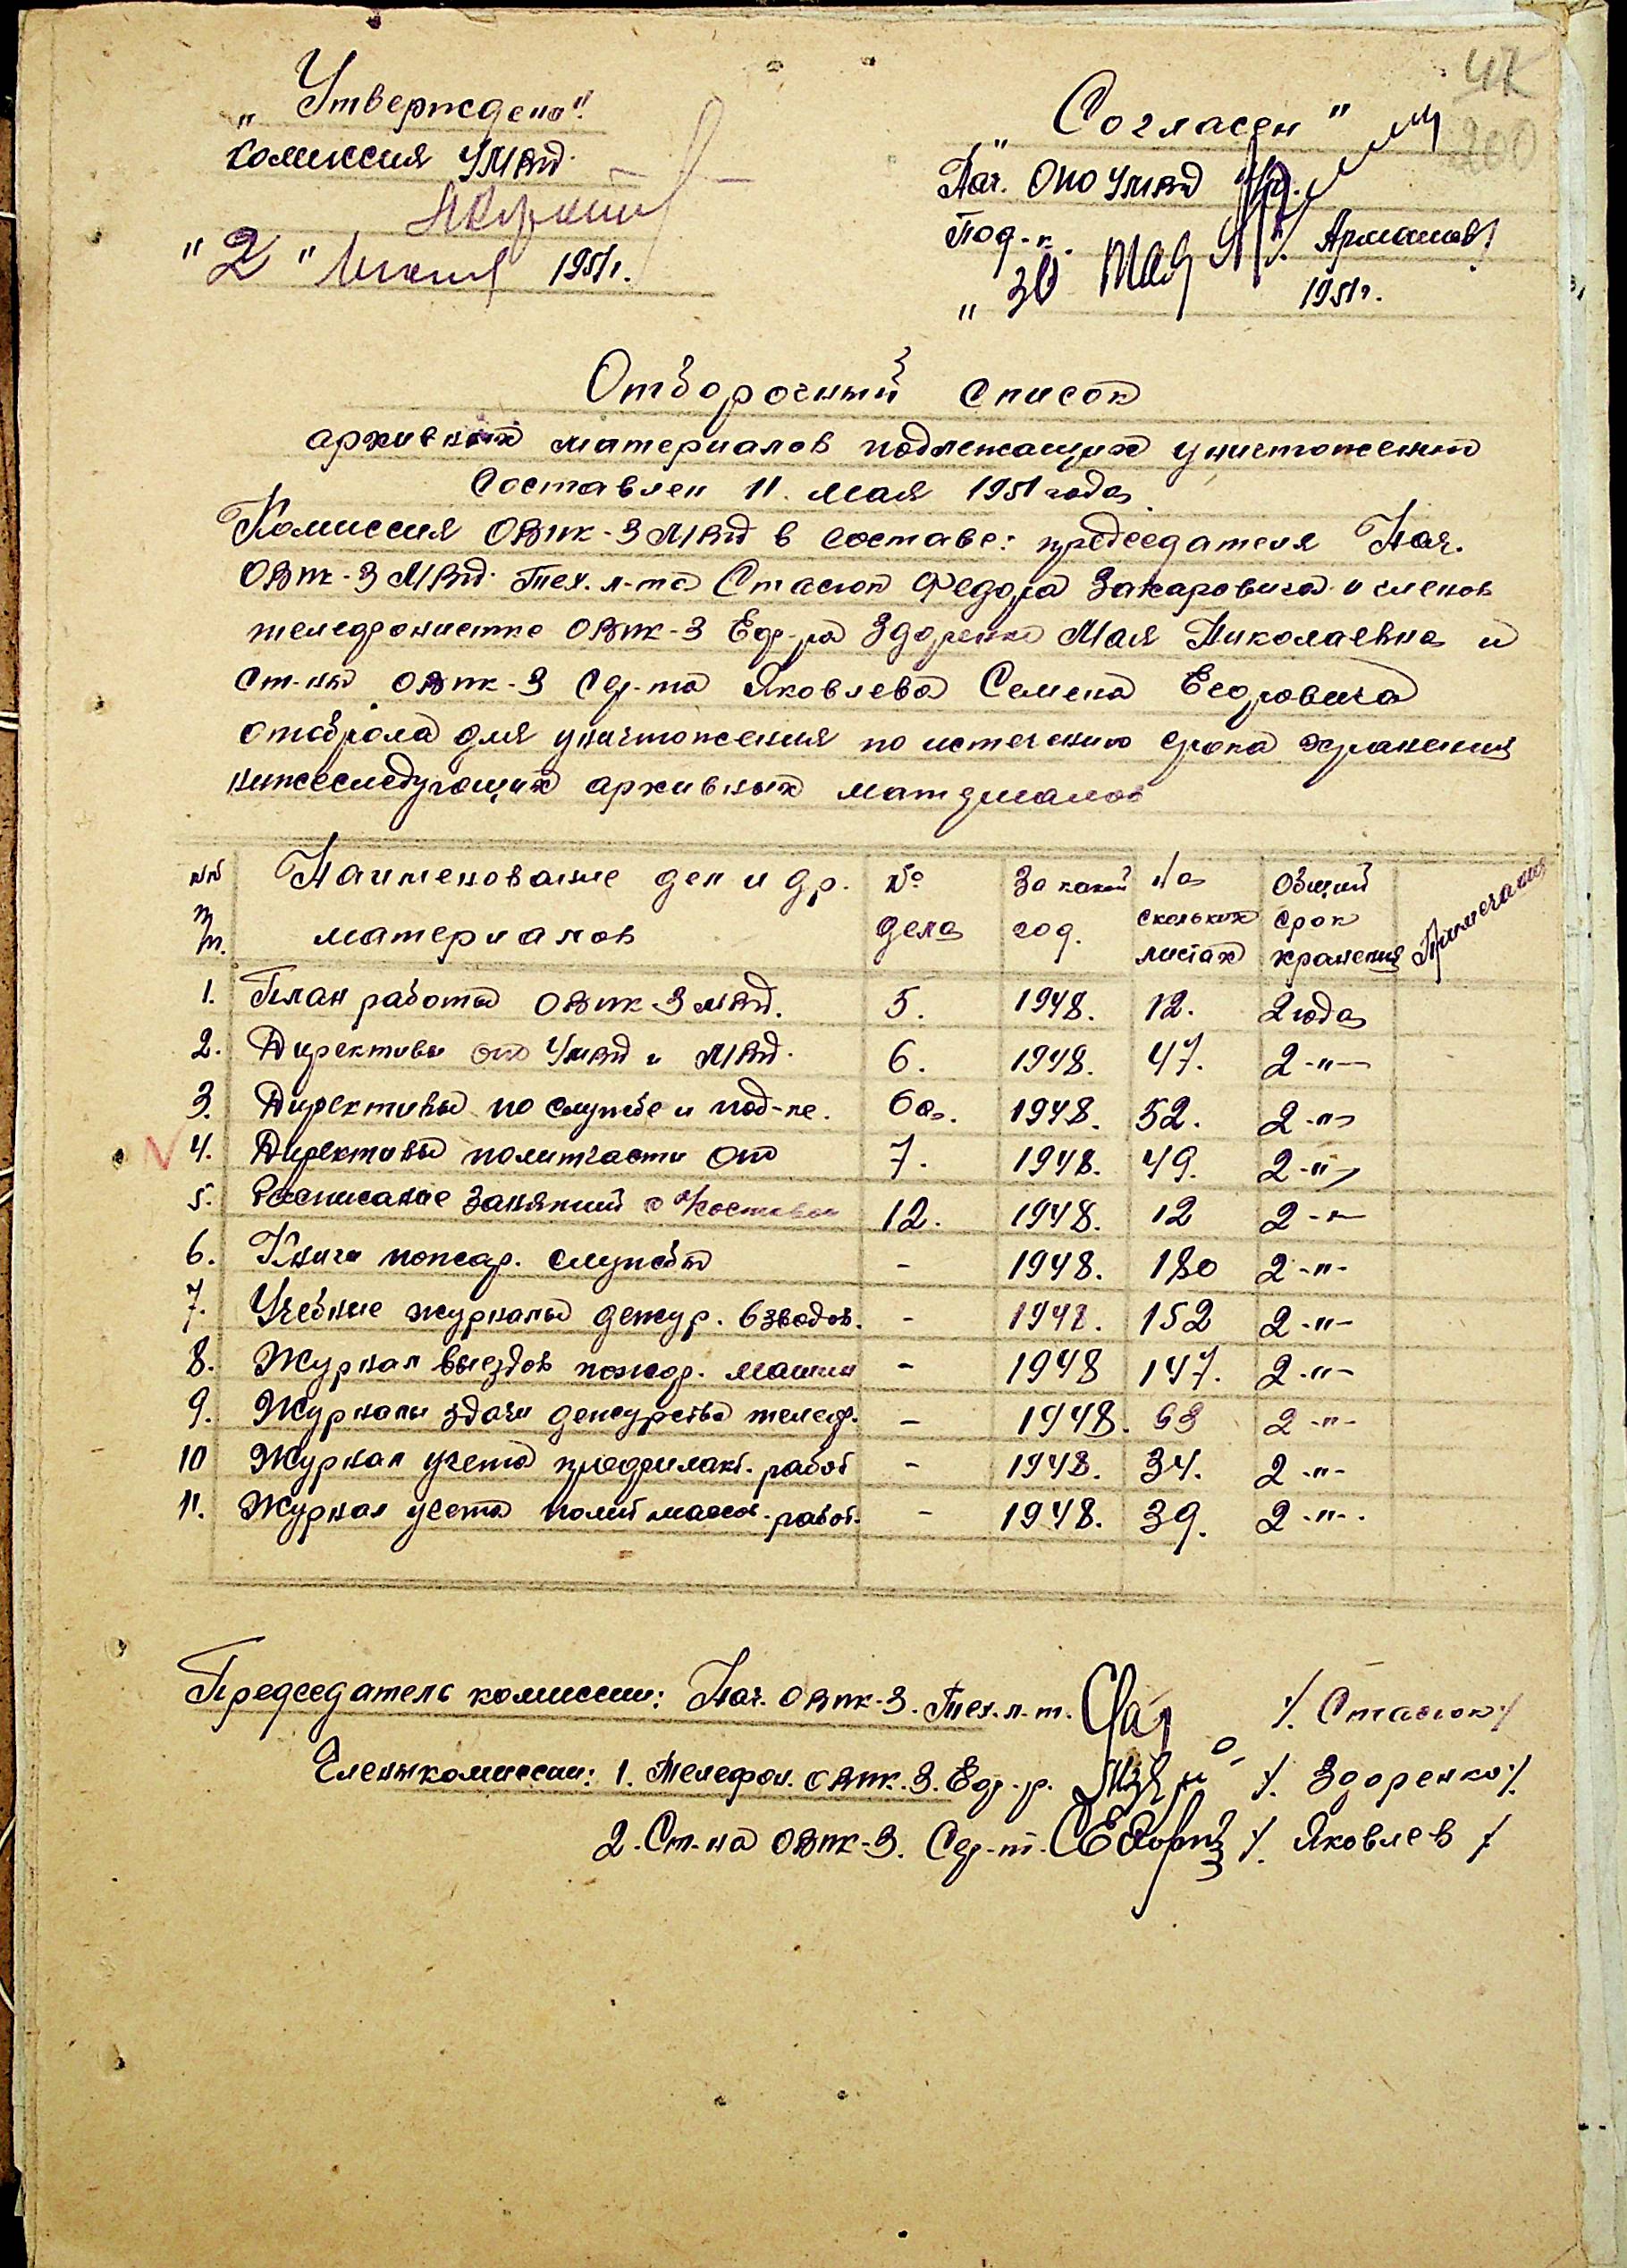 „Утверждено“
Комиссия УМВД
"2" июня 1951г.
„Согласен"
Нач. ОПО УМВД
Под-к. /Армашов/
"30 мая 1951г.
47
200
Отборочный список
архивных материалов подлежащих уничтожению
Составлен 11. мая 1951 года
Комиссия ОВПК-3 МВД в составе: председателя Нач.
ОВПК-3 МВД. Тех. л-та Стасюк Федора Захаровича и членов
телефонистка ОВПК-3 Еф-ра Здоренко Мая Николаевна и
Ст-ны ОВПК-3 Сер-та Яковлева Семена Егоровича
отобрала для уничтожения по истечению срока хранения
нижеследующих архивных материалов
№№ п/п. Наименование дел и др. материалов № дела За какой год. На скольких листах Общий срок хранения Примечание
1. План работы ОВПК-3 МВД. 5. 1948. 12. 2 года
2. Директивы ОПО УМВД и МВД. 6. 1948. 47. 2-"-
3. Директивы по службе и под-ке. 6а. 1948. 52. 2-"-
4. Директивы политчасти ОПО 7. 1948. 49. 2-"-
5. Расписание занятий с л/составом 12. 1948. 12 2-"-
6. Книги пожар. службы - 1948. 180 2-"-
7. Учебные журналы дежур. взводов. - 1948. 152 2-"-
8. Журнал выездов пожар. машин - 1948 147. 2-"-
9. Журналы здачи дежурства телеф. - 1948. 93 2-"-
10 Журнал учета профилакт. работ - 1948. 34. 2-"-
11. Журнал учета полит массов. работ. - 1948. 39. 2-"-.
Председатель комиссии: Нач. ОВПК-3. Тех.л-т. /. Стасюк/
Члены комиссии: 1. Телефон. ОВПК.3. Еф-р. /. Здоренко/.
2. Ст-на ОВПК-3. Сер-т. /. Яковлев /